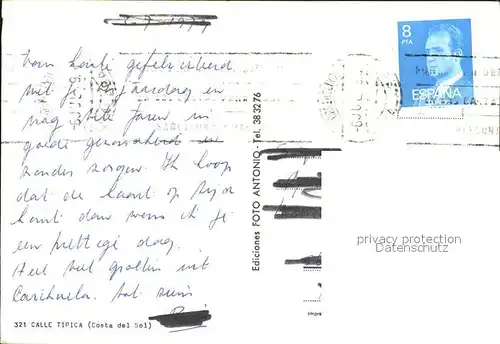 1979
Van harte gefeliciteerd
met je verjaardag en
nog vele jaren in
goede gezondheid en
zonder zorgen. Ik hoop
dat de kaart op tijd
komt dan wens ik je
een prettige dag.
Heel veel groeten uit
Carihuela. tot ziens
321 CALLE TIPICA (Costa del Sol)
Ediciones FOTO ANTONIO - Tel. 383276
8
PTA
ESPAÑA
privacy protection
Datenschutz
Impre